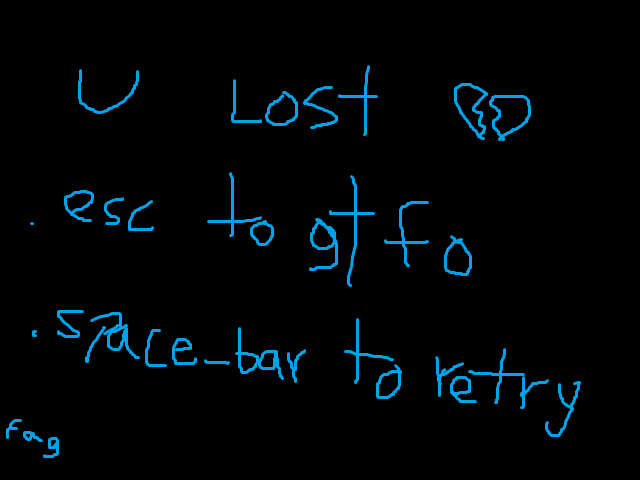 U Lost 💔
. esc to gtfo
. space-bar to retry
Fong